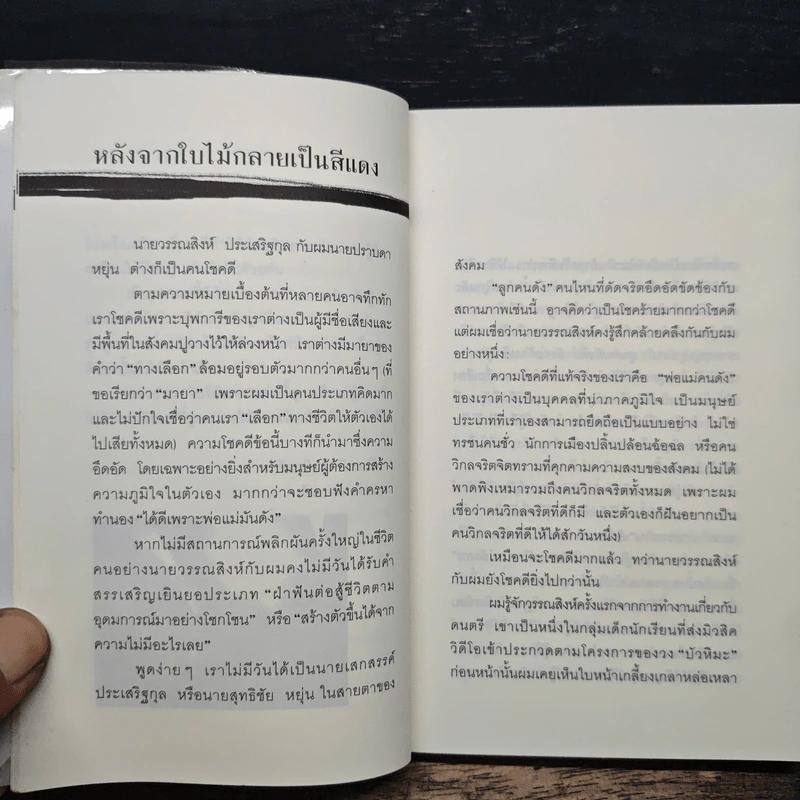 หลังจากใบไม้กลายเป็นสีแดง
นายวรรณสิงห์ ประเสริฐกุล กับผมนายปราบดา
หยุ่น ต่างก็เป็นคนโชคดี
ตามความหมายเบื้องต้นที่หลายคนอาจทึกทัก
เราโชคดีเพราะบุพการีของเราต่างเป็นผู้มีชื่อเสียงและ
มีพื้นที่ในสังคมปูวางไว้ให้ล่วงหน้า เราต่างมีมายาของ
คำว่า “ทางเลือก” ล้อมอยู่รอบตัวมากกว่าคนอื่นๆ (ที่
ขอเรียกว่า “มายา” เพราะผมเป็นคนประเภทคิดมาก
และไม่ปักใจเชื่อว่าคนเรา “เลือก” ทางชีวิตให้ตัวเองได้
ไปเสียทั้งหมด) ความโชคดีข้อนี้บางทีก็นำมาซึ่งความ
อึดอัด โดยเฉพาะอย่างยิ่งสำหรับมนุษย์ผู้ต้องการสร้าง
ความภูมิใจในตัวเอง มากกว่าจะชอบฟังคำครหา
ทำนอง “ได้ดีเพราะพ่อแม่มันดัง”
หากไม่มีสถานการณ์พลิกผันครั้งใหญ่ในชีวิต
คนอย่างนายวรรณสิงห์กับผมคงไม่มีวันได้รับคำ
สรรเสริญเยินยอประเภท “ฝ่าฟันต่อสู้ชีวิตตาม
อุดมการณ์มาอย่างโชกโชน” หรือ “สร้างตัวขึ้นได้จาก
ความไม่มีอะไรเลย”
พูดง่ายๆ เราไม่มีวันได้เป็นนายเสกสรรค์
ประเสริฐกุล หรือนายสุทธิชัย หยุ่น ในสายตาของ
สังคม
“ลูกคนดัง” คนไหนที่ดัดจริตอึดอัดขัดข้องกับ
สถานภาพเช่นนี้ อาจคิดว่าเป็นโชคร้ายมากกว่าโชคดี
แต่ผมเชื่อว่านายวรรณสิงห์คงรู้สึกคล้ายคลึงกันกับผม
อย่างหนึ่ง:
ความโชคดีที่แท้จริงของเราคือ “พ่อแม่คนดัง”
ของเราต่างเป็นบุคคลที่น่าภาคภูมิใจ เป็นมนุษย์
ประเภทที่เราเองสามารถยึดถือเป็นแบบอย่าง ไม่ใช่
ทรชนคนชั่ว นักการเมืองปลิ้นปล้อนฉ้อฉล หรือคน
วิกลจริตจิตทรามที่คุกคามความสงบของสังคม (ไม่ได้
พาดพิงเหมารวมถึงคนวิกลจริตทั้งหมด เพราะผม
เชื่อว่าคนวิกลจริตที่ดีก็มี และตัวเองก็ฝันอยากเป็น
คนวิกลจริตที่ดีให้ได้สักวันหนึ่ง)
เหมือนจะโชคดีมากแล้ว ทว่านายวรรณสิงห์
กับผมยังโชคดียิ่งไปกว่านั้น
ผมรู้จักวรรณสิงห์ครั้งแรกจากการทำงานเกี่ยวกับ
ดนตรี เขาเป็นหนึ่งในกลุ่มเด็กนักเรียนที่ส่งมิวสิค
วิดีโอเข้าประกวดตามโครงการของวง “บัวหิมะ”
ก่อนหน้านั้นผมเคยเห็นใบหน้าเกลี้ยงเกลาหล่อเหลา